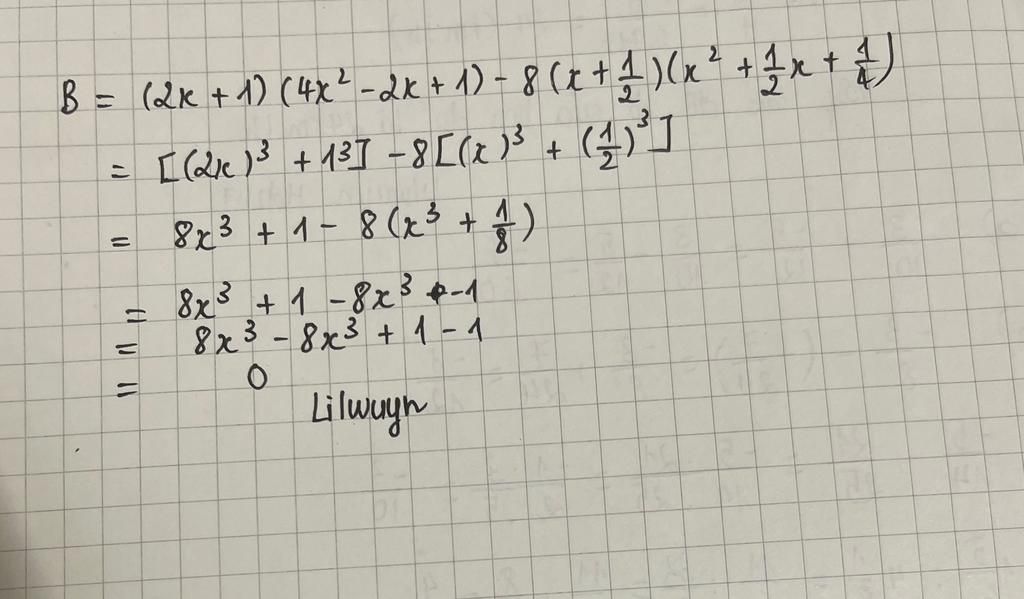 B = (2x + 1) (4x² - 2x + 1) - 8 (x + 1/2) (x² + 1/2 x + 1/4)
= [(2x)³ + 1³] - 8 [(x)³ + (1/2)³]
= 8x³ + 1 - 8 (x³ + 1/8)
= 8x³ + 1 - 8x³ - 1
= 8x³ - 8x³ + 1 - 1
= 0
Lilwuyn